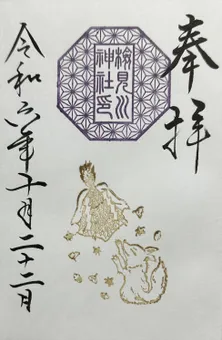 奉拝
検見川
神社印
令和六年十一月二十二日